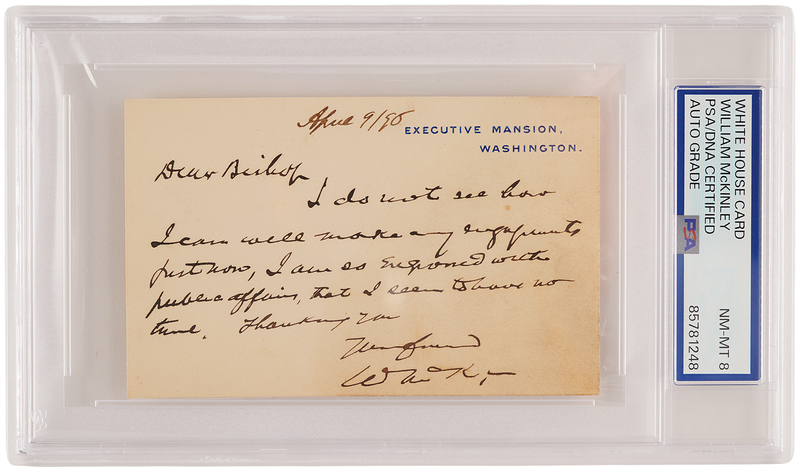 April 9/98
EXECUTIVE MANSION,
WASHINGTON.
Dear Bishop
I do not see how
I can well make any engagements
just now, I am so engrossed with
public affairs, that I seem to have no
time. Thanking you
Your friend
W McK
WHITE HOUSE CARD
WILLIAM McKINLEY
PSA/DNA CERTIFIED
AUTO GRADE
NM-MT 8
85781248
PSA